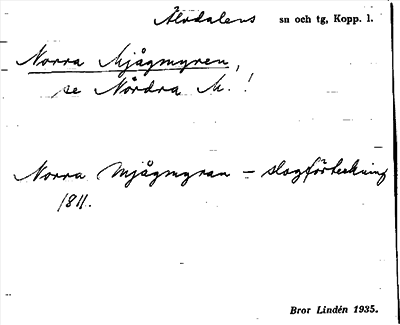 Älvdalens sn och tg, Kopp. l.
Norra Mjågmyren,
se Nördra M. !
Norra Mjågmyran – slogförteckning
1811.
Bror Lindén 1935.